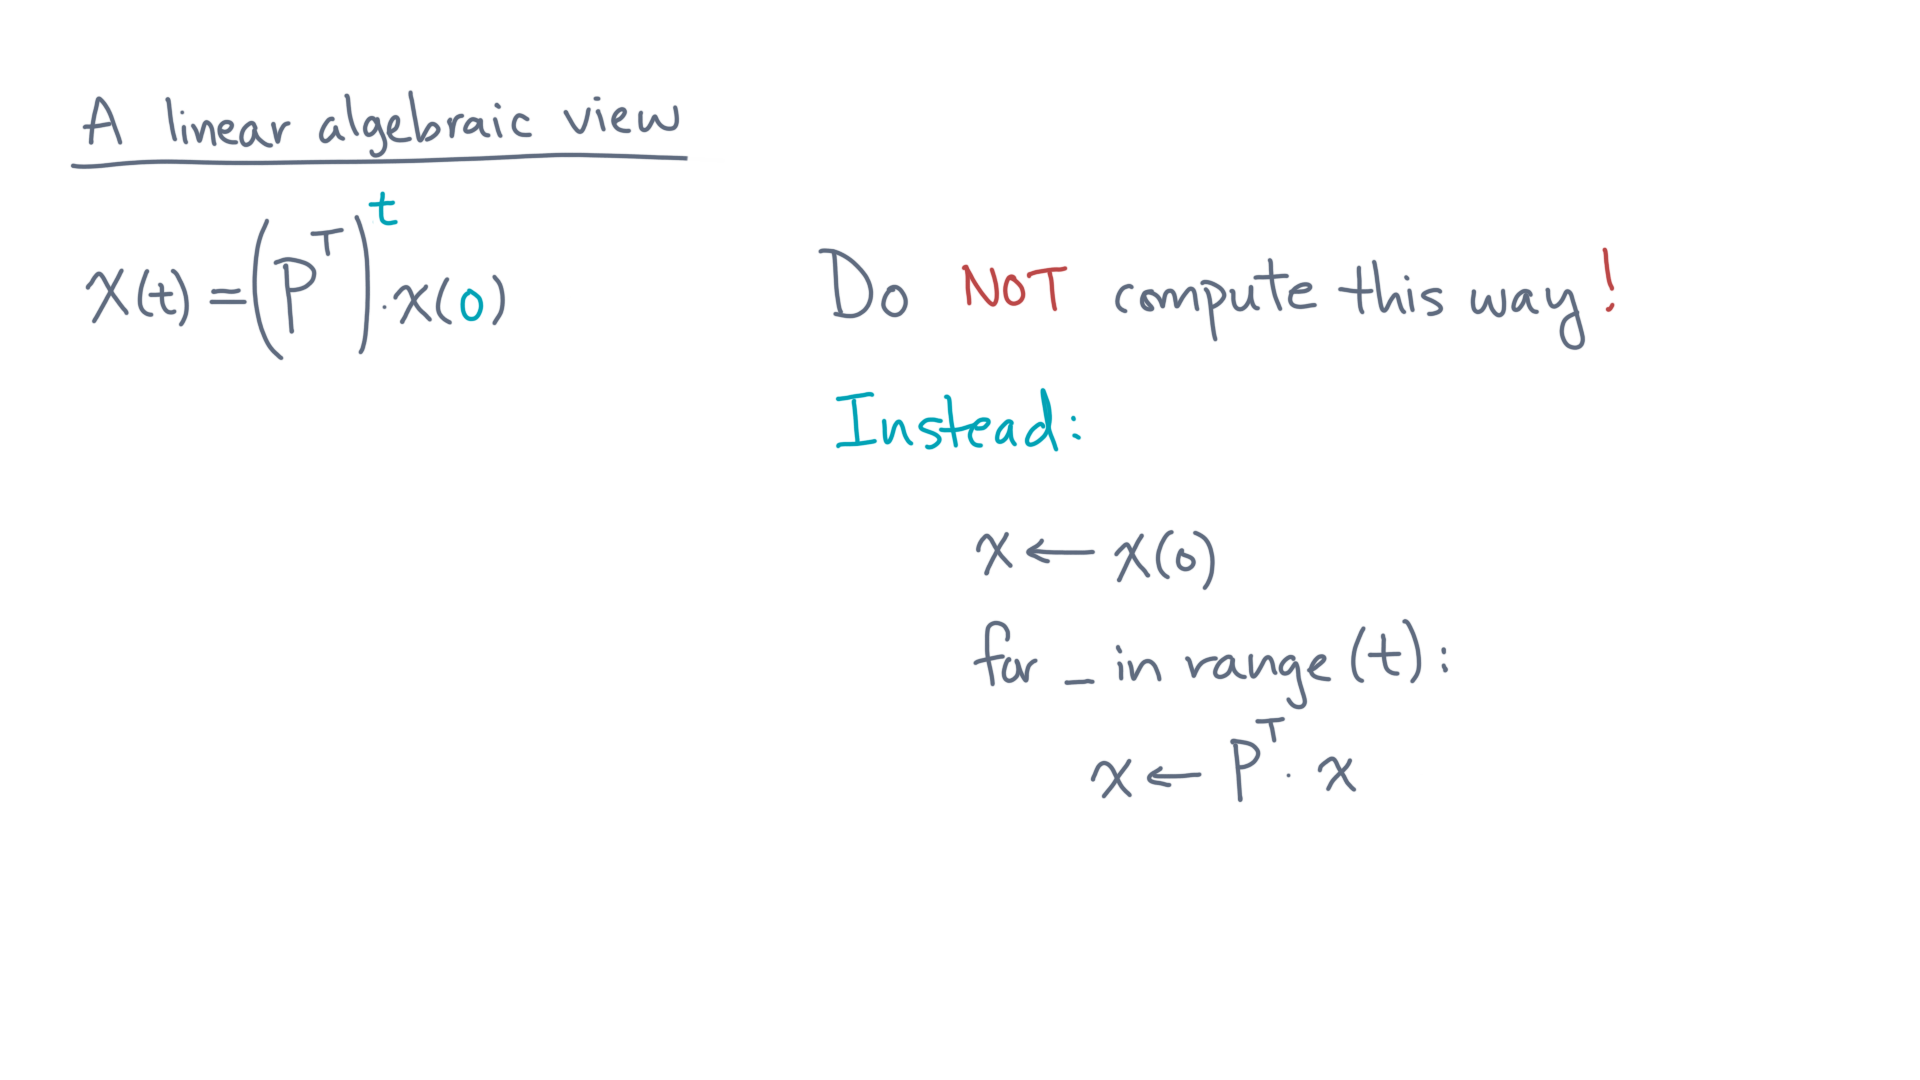 A linear algebraic view
x(t) = (P^T)^t · x(0)
Do NOT compute this way!
Instead:
x ← x(0)
for _ in range(t):
x ← P^T · x